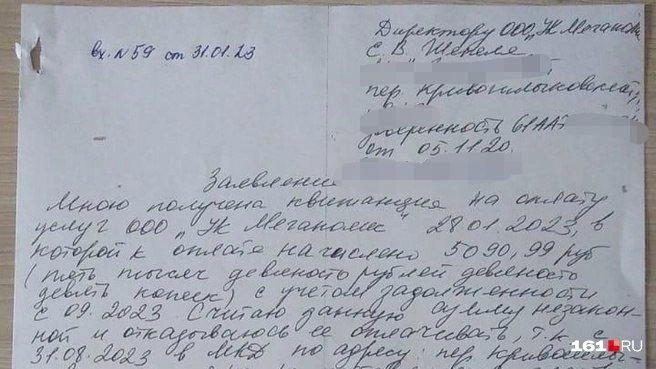 вх. N 59 от 31.01.23
Директору ООО „УК Меганом
С. В. Шекеле
пер. Кривошлыковский,
61АА
от 05.11.20.
Заявление
Мною получена квитанция на оплату
услуг ООО „УК Меганом" 28.01.2023, в
которой к оплате начислено 5090,99 руб
(пять тысяч девяносто рублей девяносто
девять копеек) с учетом задолженности
с 09.2023. Считаю данную сумму незакон-
ной и отказываюсь ее оплачивать, т.к. с
31.08.2023 в МКД по адресу: пер. Кривошлы-
161.RU